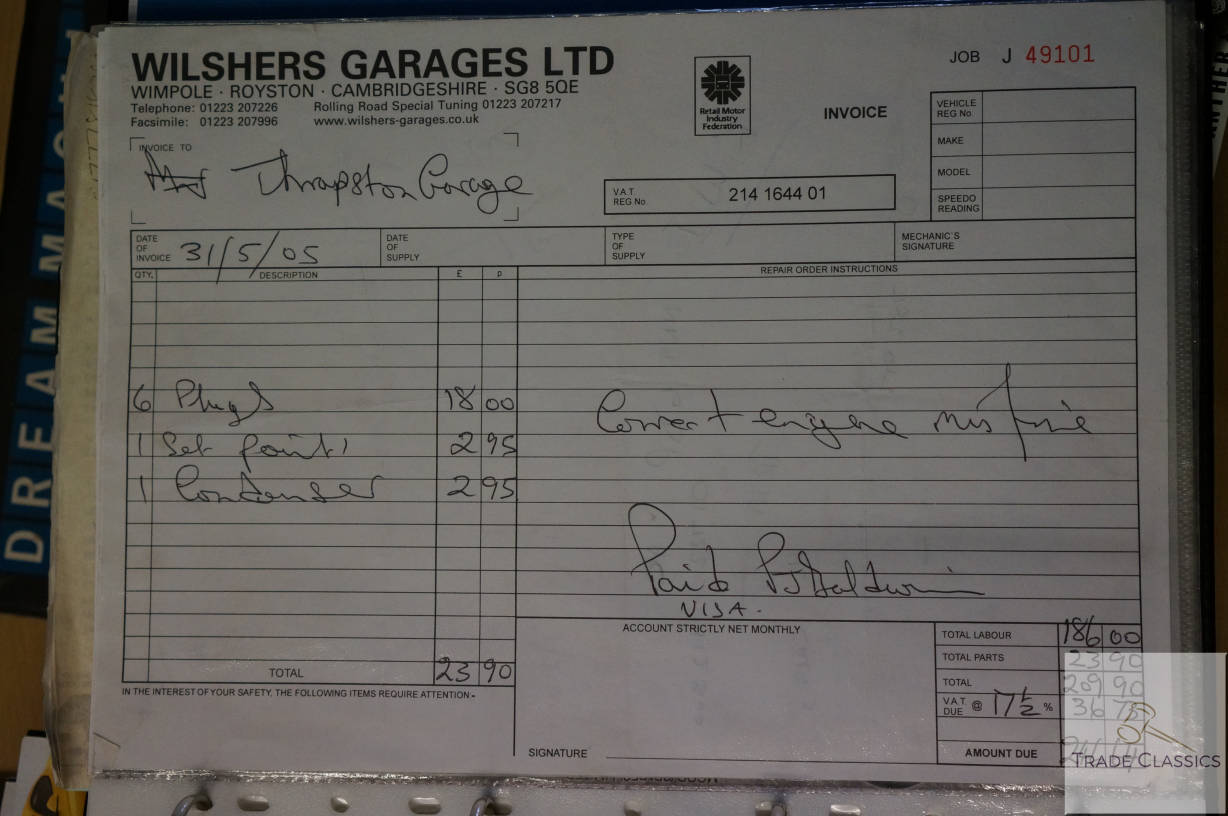 WILSHERS GARAGES LTD
WIMPOLE · ROYSTON · CAMBRIDGESHIRE · SG8 5QE
Telephone: 01223 207226 Rolling Road Special Tuning 01223 207217
Facsimile: 01223 207996 www.wilshers-garages.co.uk
Retail Motor
Industry
Federation
JOB J 49101
INVOICE
VEHICLE
REG No.
MAKE
MODEL
SPEEDO
READING
INVOICE TO
Thrapston Garage
V.A.T.
REG No. 214 1644 01
DATE OF INVOICE 31/5/05
DATE OF SUPPLY
TYPE OF SUPPLY
MECHANIC'S SIGNATURE
QTY. DESCRIPTION £ p
REPAIR ORDER INSTRUCTIONS
6 Plugs 18 00
1 Set points 2 95
1 Condenser 2 95
TOTAL 23 90
Correct engine misfire
Paid
VISA.
IN THE INTEREST OF YOUR SAFETY, THE FOLLOWING ITEMS REQUIRE ATTENTION -
ACCOUNT STRICTLY NET MONTHLY
SIGNATURE
TOTAL LABOUR 186 00
TOTAL PARTS 23 90
TOTAL 209 90
V.A.T. DUE @ 17½ % 36
AMOUNT DUE
TRADE CLASSICS
DREAM MACH